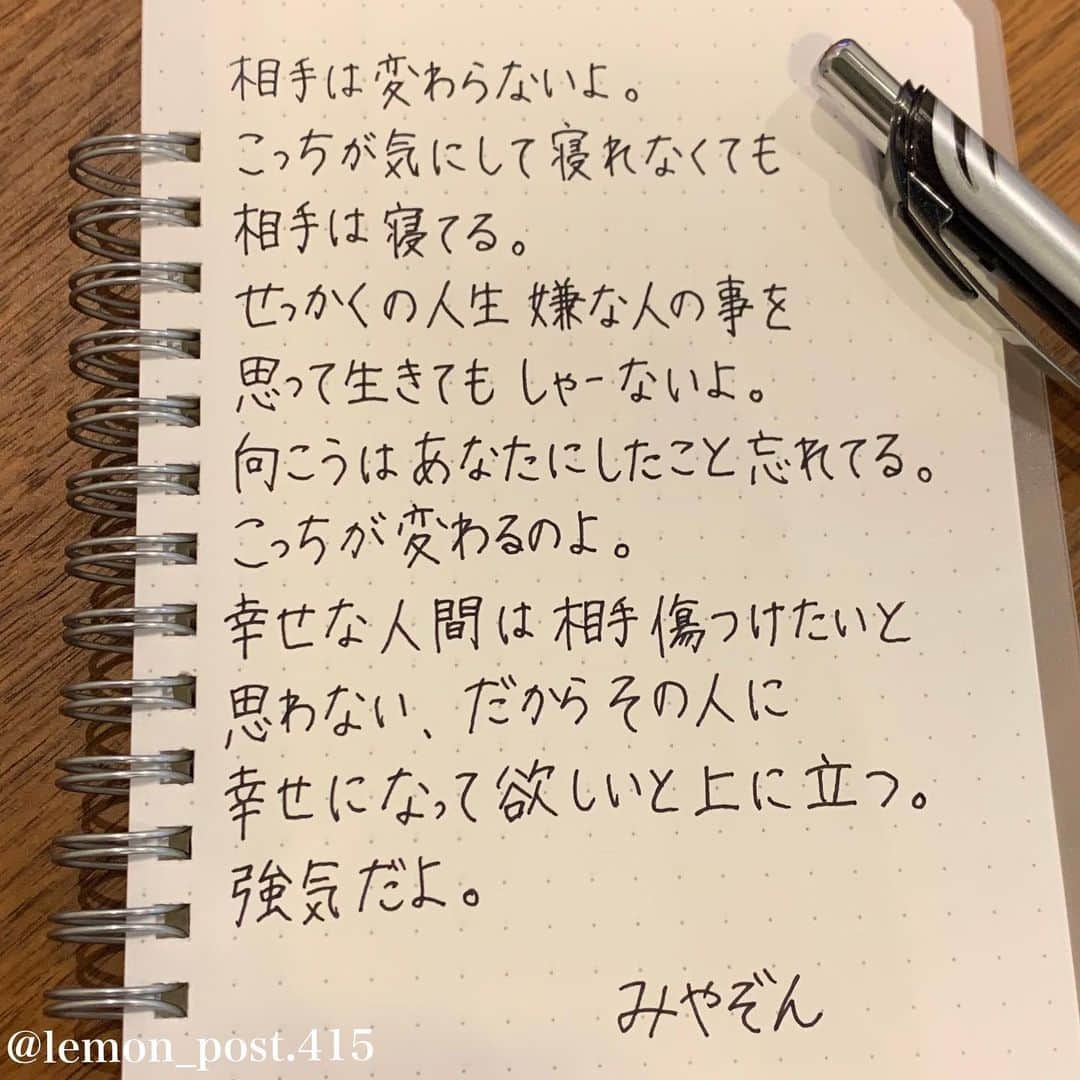 相手は変わらないよ。
こっちが気にして寝れなくても
相手は寝てる。
せっかくの人生 嫌な人の事を
思って生きてもしゃーないよ。
向こうはあなたにしたこと忘れてる。
こっちが変わるのよ。
幸せな人間は相手傷つけたいと
思わない、だからその人に
幸せになって欲しいと上に立つ。
強気だよ。
みやぞん
@lemon_post.415